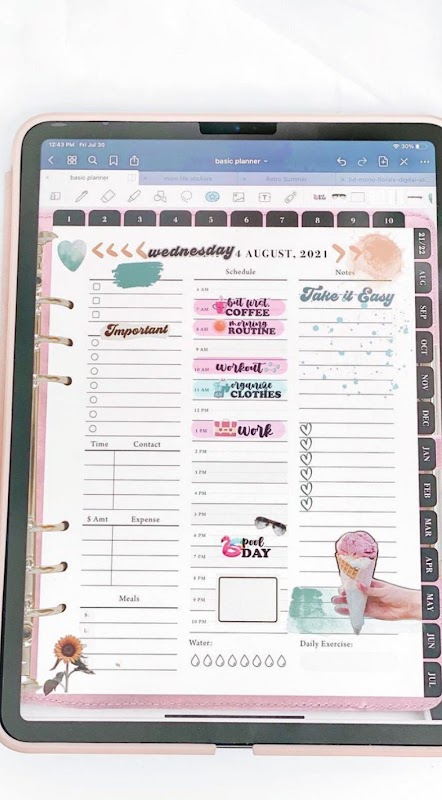 12:43 PM Fri Jul 30
30%
basic planner
basic planner
Retro Summer
1 2 3 4 5 6 7 8 9 10
wednesday 4 AUGUST, 2021
Schedule
Notes
Take it Easy
6 AM
7 AM but first, COFFEE
8 AM morning ROUTINE
Important
9 AM
10 AM workout
11 AM organize CLOTHES
12 PM
1 PM WORK
2 PM
3 PM
4 PM
5 PM
6 PM
7 PM pool DAY
8 PM
9 PM
10 PM
Time Contact
$ Amt Expense
Meals
Water:
Daily Exercise:
21/22
AUG
SEP
OCT
NOV
DEC
JAN
FEB
MAR
APR
MAY
JUN
JUL